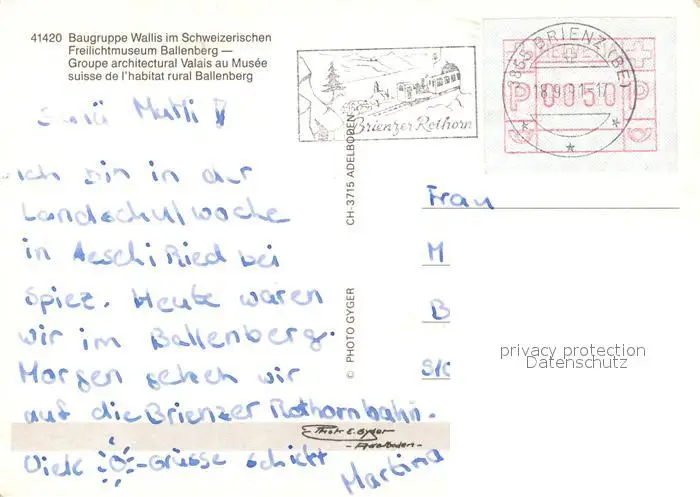 41420 Baugruppe Wallis im Schweizerischen
Freilichtmuseum Ballenberg —
Groupe architectural Valais au Musée
suisse de l'habitat rural Ballenberg
Brienzer Rothorn
3855 BRIENZ (BE)
P 0050 P
CH-3715 ADELBODEN
© PHOTO GYGER
Ich bin in der
Landschulwoche
in Aeschi Ried bei
Spiez. Heute waren
wir im Ballenberg.
Morgen gehen wir
auf die Brienzer Rothornbahn.
Viele -Grüsse schickt
Martina
Photo E. Gyger
- Adelboden -
Frau
M
B
privacy protection
Datenschutz